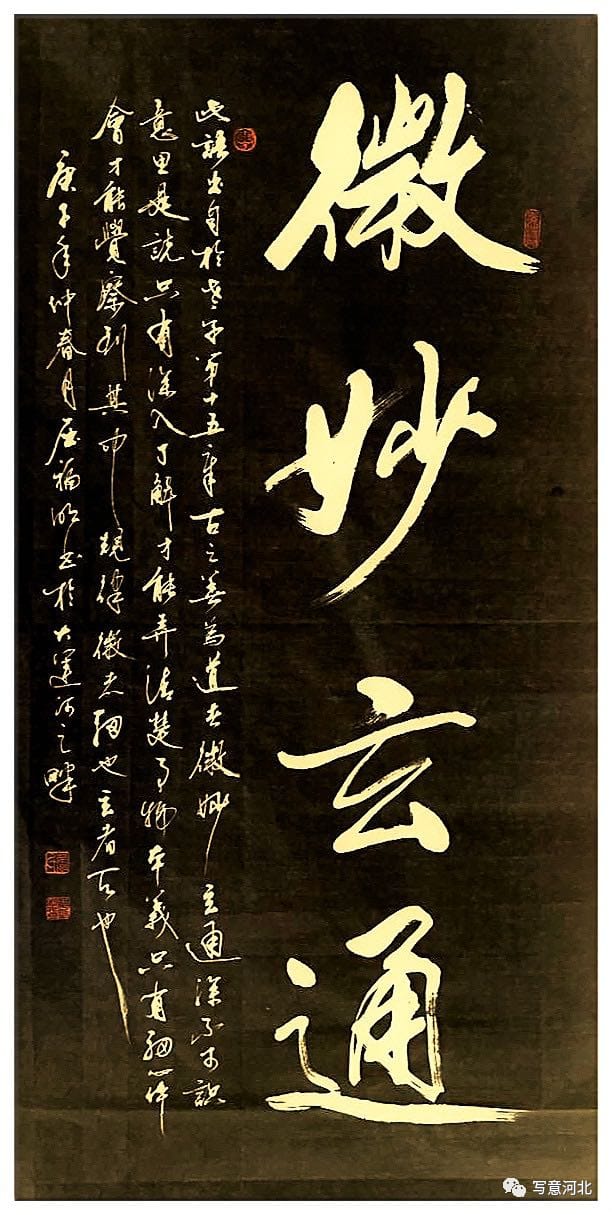 微妙玄通
此語出自於老子第十五章古之善為道者微妙玄通深不可識
意思是說只有深入了解才能弄清楚事物本義只有細心体
會才能覺察到其中規律微者細也玄者也
庚子年仲春月书於大運河之畔
写意河北